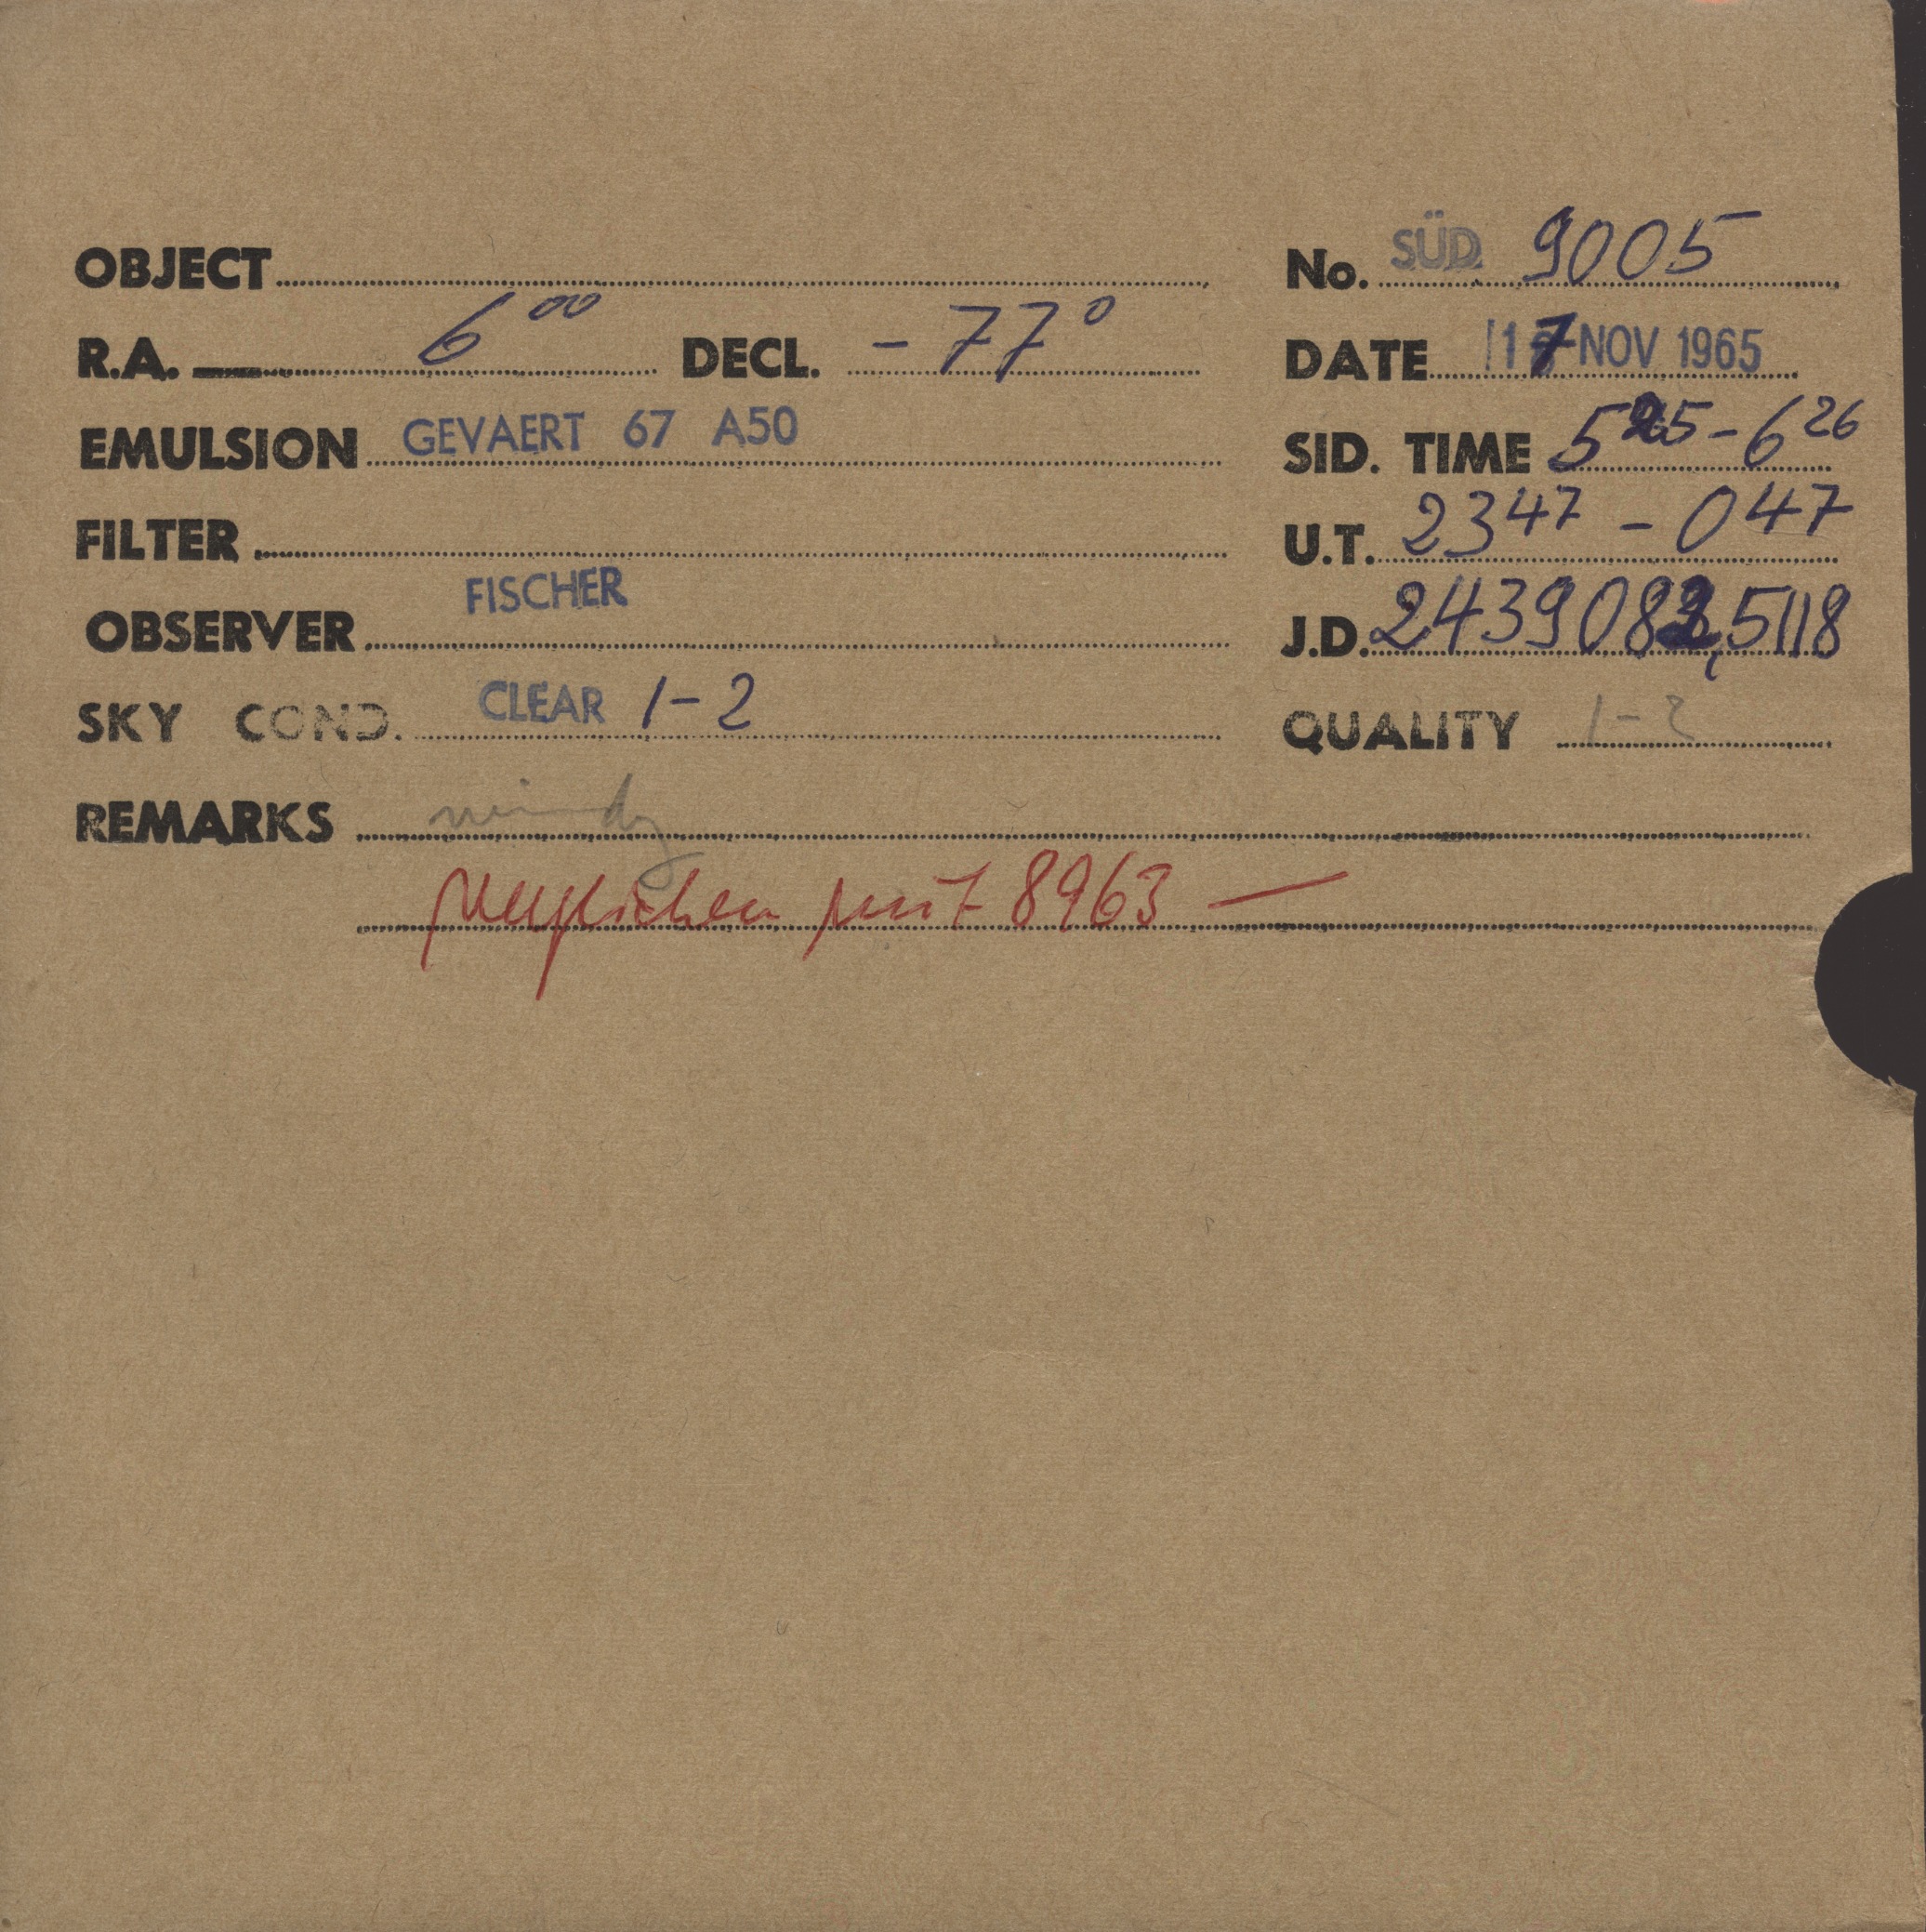 OBJECT
No. SÜD 9005
R.A. 6⁰⁰ DECL. -77°
DATE 17 NOV 1965
EMULSION GEVAERT 67 A50
SID. TIME 5²⁵-6²⁶
FILTER
U.T. 23⁴⁷ - 0⁴⁷
OBSERVER FISCHER
J.D. 2439082,5118
SKY COND. CLEAR 1-2
QUALITY 1-2
REMARKS windy
verglichen mit 8963 —